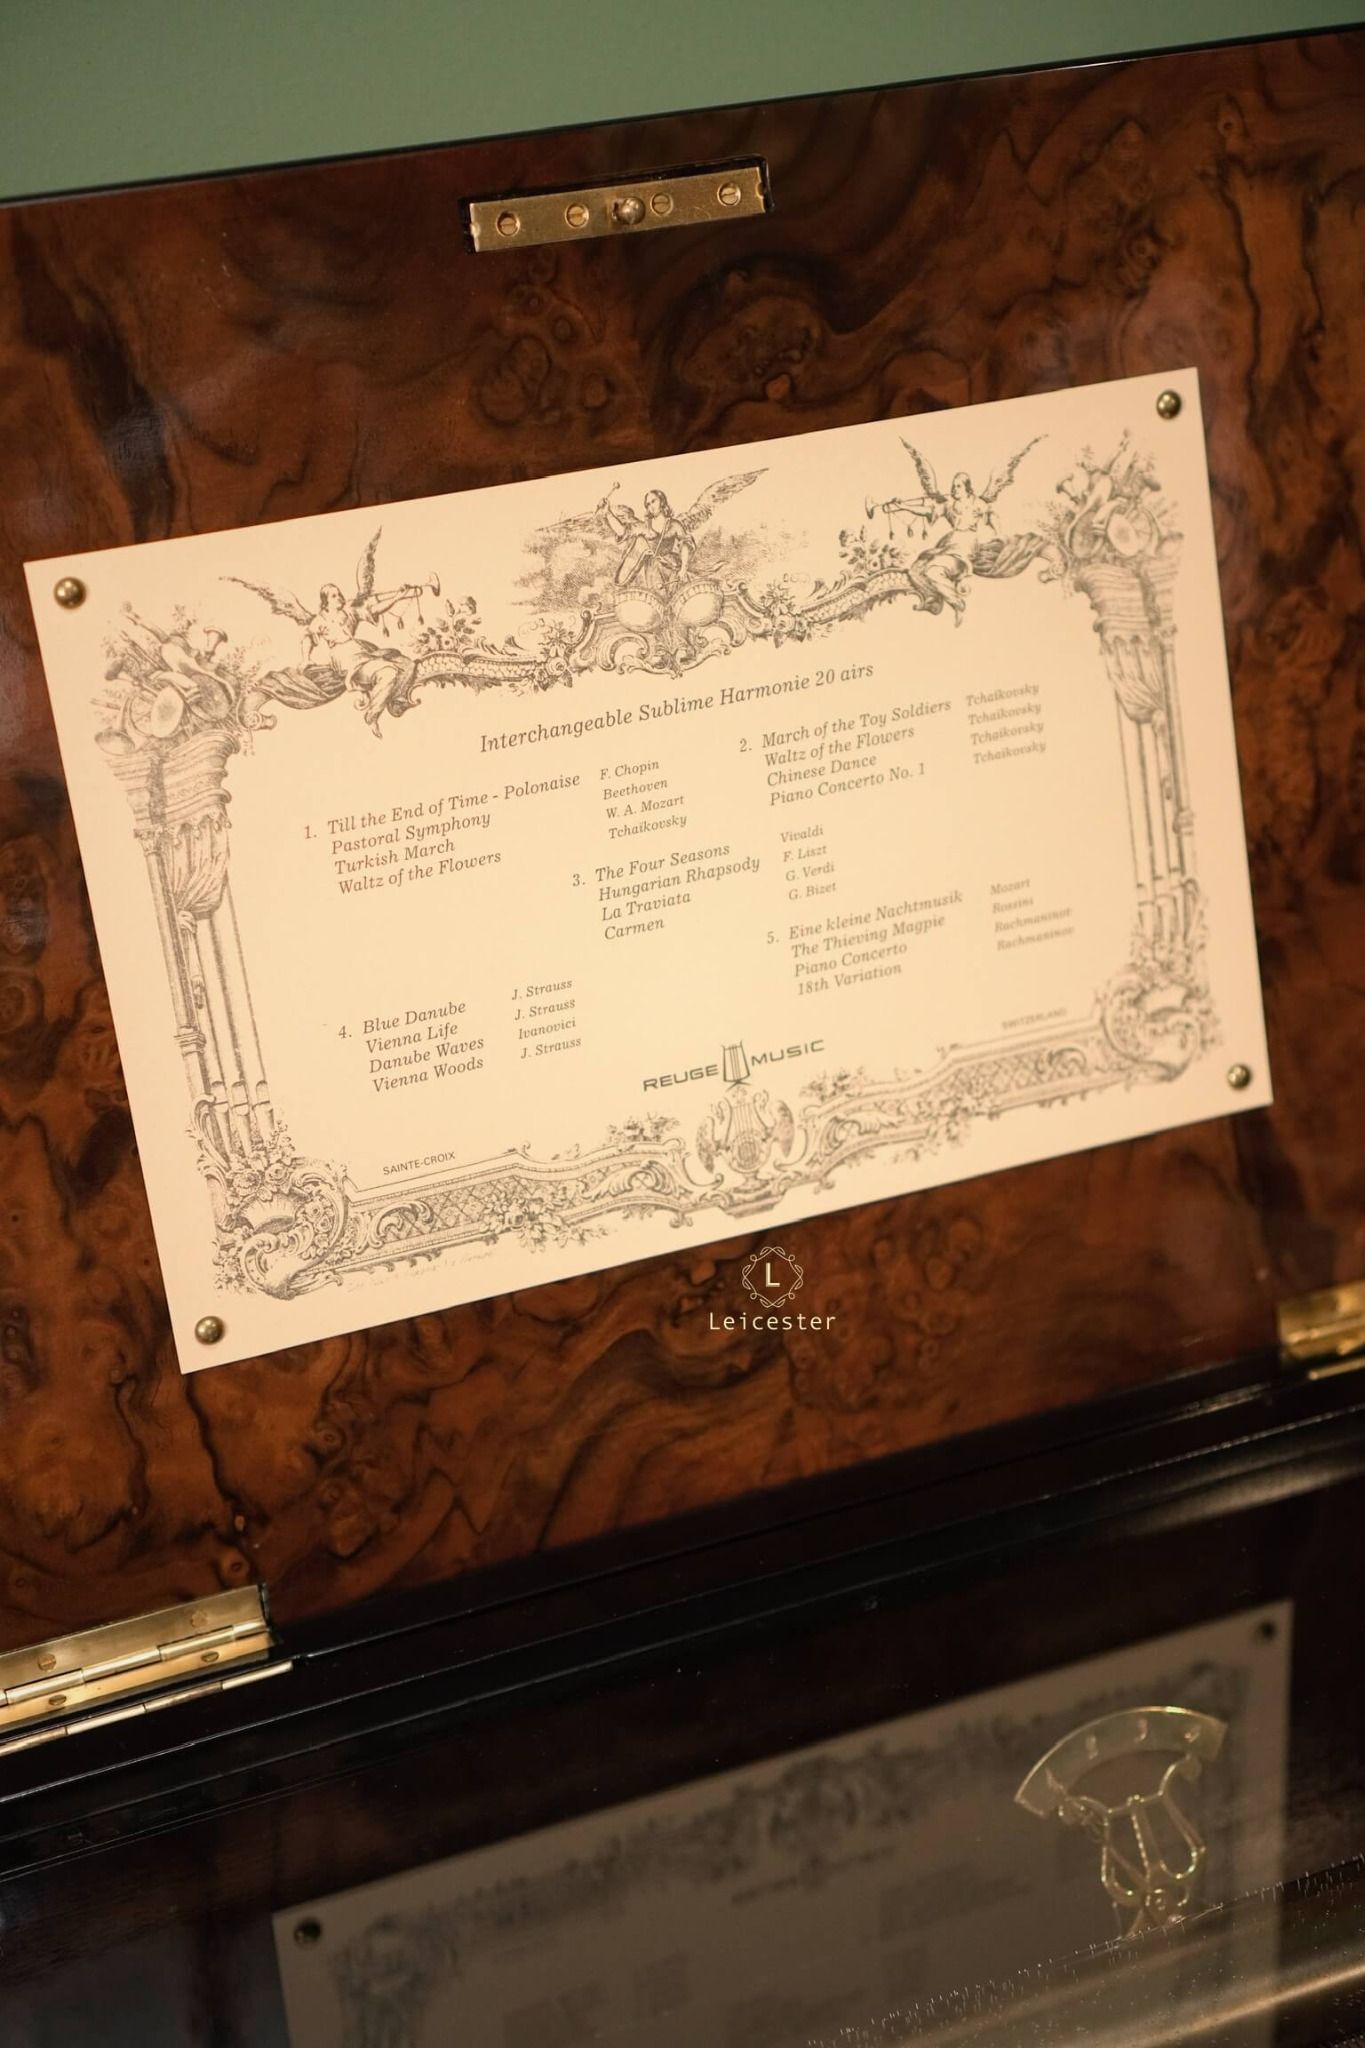 Interchangeable Sublime Harmonie 20 airs
1. Till the End of Time - Polonaise F. Chopin
Pastoral Symphony Beethoven
Turkish March W. A. Mozart
Waltz of the Flowers Tchaïkovsky
2. March of the Toy Soldiers Tchaïkovsky
Waltz of the Flowers Tchaïkovsky
Chinese Dance Tchaïkovsky
Piano Concerto No. 1 Tchaïkovsky
3. The Four Seasons Vivaldi
Hungarian Rhapsody F. Liszt
La Traviata G. Verdi
Carmen G. Bizet
4. Blue Danube J. Strauss
Vienna Life J. Strauss
Danube Waves Ivanovici
Vienna Woods J. Strauss
5. Eine kleine Nachtmusik Mozart
The Thieving Magpie Rossini
Piano Concerto Rachmaninov
18th Variation Rachmaninov
REUGE MUSIC
SAINTE-CROIX
SWITZERLAND
L
Leicester